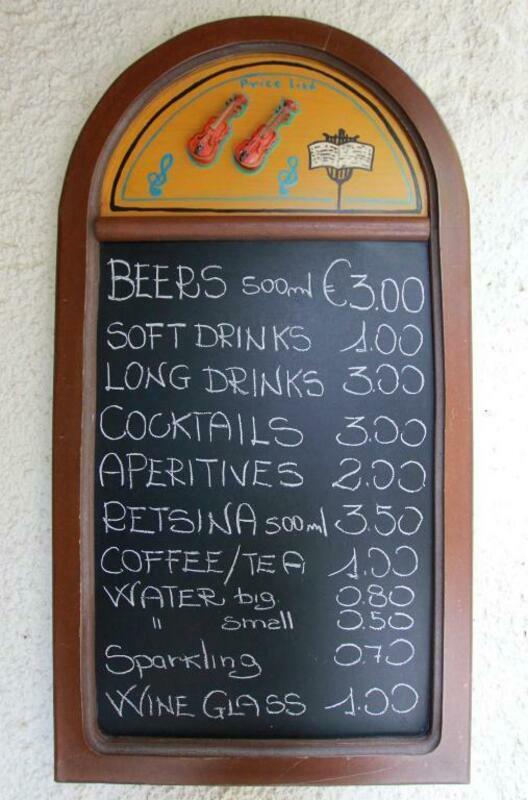 Price list
BEERS 500ml € 3.00
SOFT DRINKS 1.00
LONG DRINKS 3.00
COCKTAILS 3.00
APERITIVES 2.00
RETSINA 500ml 3.50
COFFEE/TEA 1.00
WATER big. 0.80
" small 0.50
Sparkling 0.70
WINE GLASS 1.00